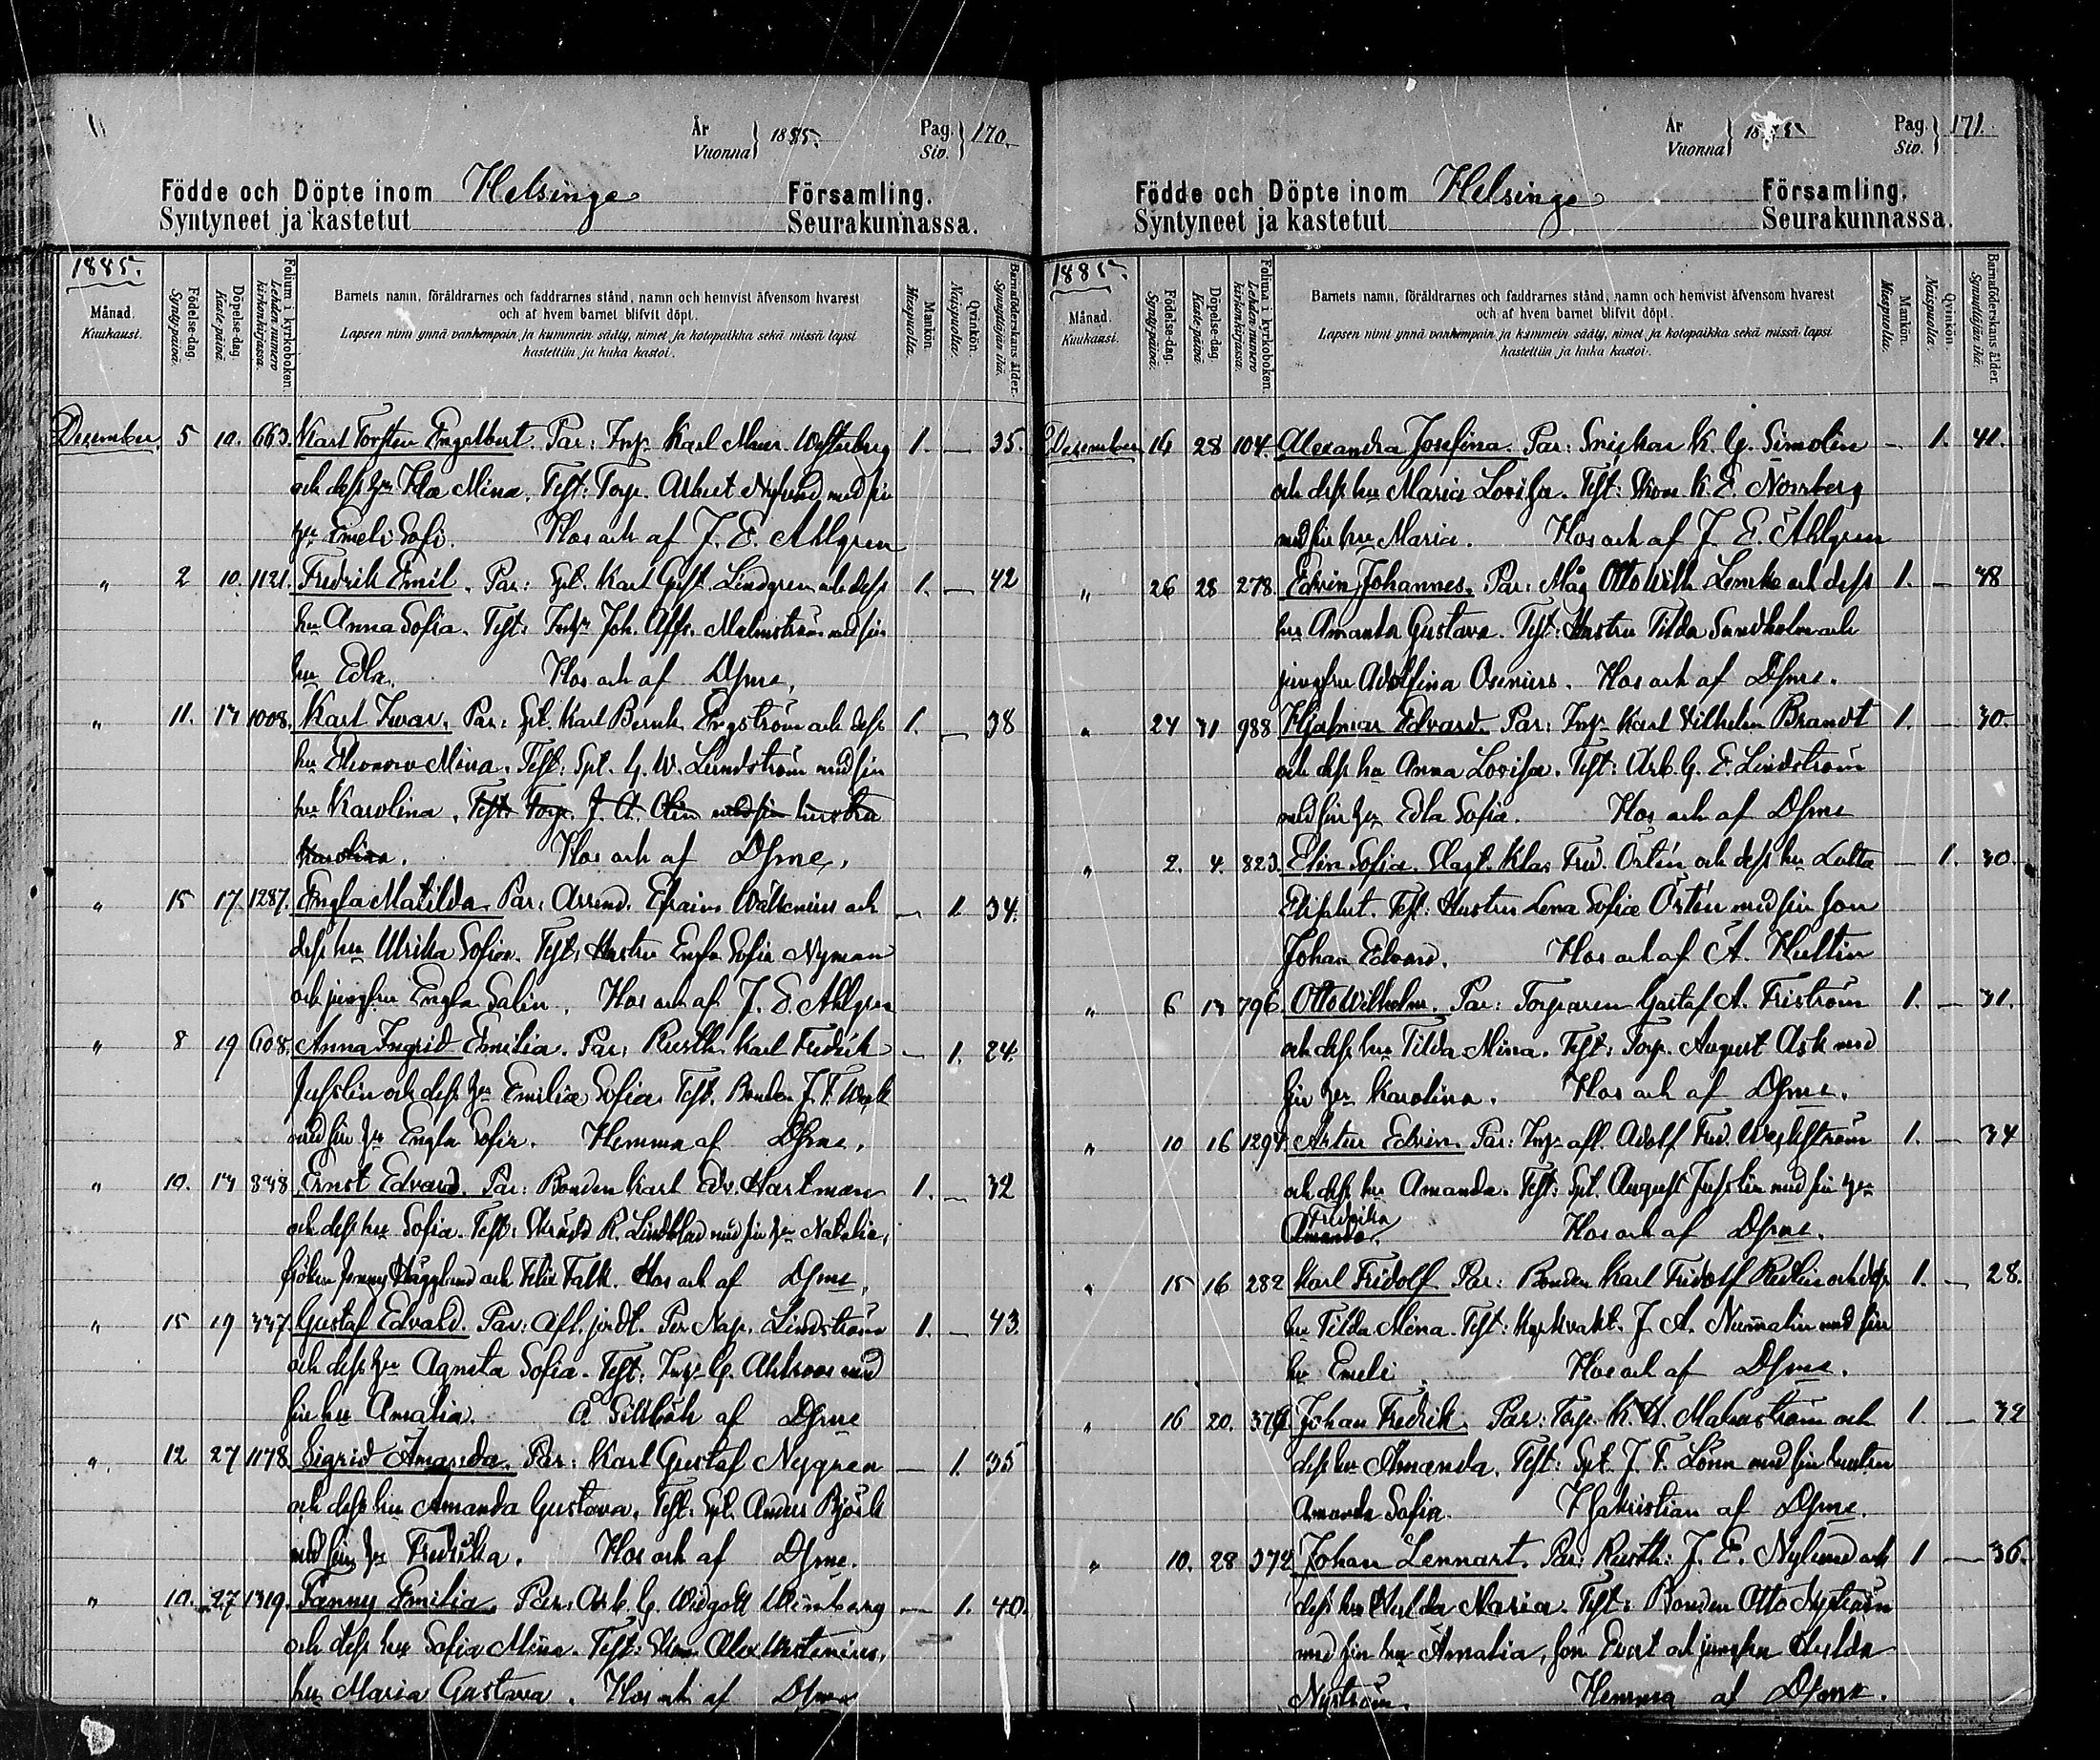 År
Vuonna } 1885.
Pag.
Siv. } 170.
Födde och Döpte inom Helsinge Församling.
Syntyneet ja kastetut Seurakunnassa.
1885.
Månad.
Kuukausi.
Födelse-dag.
Synty-päivä.
Döpelse-dag.
Kaste-päivä.
Folium i kyrkoboken.
Lehden numero kirkonkirjassa.
Barnets namn, föräldrarnes och faddrarnes stånd, namn och hemvist äfvensom hvarest
och af hvem barnet blifvit döpt.
Lapsen nimi ynnä vanhempain ja kummein sääty, nimet ja kotopaikka sekä missä lapsi
kastettiin ja kuka kastoi.
Mankön.
Miespuolia.
Qvinkön.
Naispuolia.
Barnaföderskans ålder.
Synnyttäjän ikä.
December 5 10. 663. Karl Torsten Engelbert. Par: Inh. Karl Westerberg 1. — 35.
och dess hu Ida Mina. Test: Torp. Albert Nylund med sin
hu Emeli Sofi. Hos och af J. E. Ahlgren
" 2 10. 1121. Fredrik Emil. Par: Spl. Karl Gust. Lindgren och dess 1. — 42
hu Anna Sofia. Test: Inh. Joh. Alfr. Malmström med sin
hu Edla. Hos och af Dsme.
" 11. 13 1008. Karl Ivar. Par: Spl. Karl Bernh. Engström och dess 1. — 38
hu Eleonora Mina. Test: Spl. G. W. Lundström med sin
hu Karolina. Test: Torp. J. A. Olin med sin hustru
Karolina. Hos och af Dsme.
" 15 17. 1287. Engla Matilda. Par: Arrend. Efraim Wallenius och — 1. 34.
dess hu Ulrika Sofia. Test: Hustru Engla Sofia Nyman
och jungfru Engla Salin. Hos och af J. E. Ahlgren
" 8 19 608. Anna Ingrid Emilia. Par: Rusth. Karl Fredrik — 1. 24.
Jusslin och dess hu Emilia Sofia. Test. Bonden J. F. Weck
med sin hu Engla Sofia. Hemma af Dsme.
" 10. 13 838. Ernst Edvard. Par: Bonden Karl Edv. Hartman 1. — 32
och dess hu Sofia. Test: Skrädd. R. Lindblad med sin hu Natalia,
fröken Jenny Hägglund och Felix Falk. Hos och af Dsme.
" 15 19 337. Gustaf Edvald. Par: Afl. jordt. Per Nap. Lindström 1. — 43.
och dess hu Agneta Sofia. Test: Inh. G. Ahlroos med
sin hu Amalia. Å Sillböle af Dsme
" 12 27 1178. Sigrid Amanda. Par: Karl Gustaf Nygren — 1. 35
och dess hu Amanda Gustava. Test: Spl. Anders Björk
med sin hu Fredrika. Hos och af Dsme.
" 10. 27 1319. Fanny Emilia. Par: Arb. G. Widgott Wimberg — 1. 40.
och dess hu Sofia Mina. Test: Alex Westenius,
hu Maria Gustava. Hos och af Dsme
År
Vuonna } 1885
Pag.
Siv. } 171.
Födde och Döpte inom Helsinge Församling.
Syntyneet ja kastetut Seurakunnassa.
1885.
Månad.
Kuukausi.
Födelse-dag.
Synty-päivä.
Döpelse-dag.
Kaste-päivä.
Folium i kyrkoboken.
Lehden numero kirkonkirjassa.
Barnets namn, föräldrarnes och faddrarnes stånd, namn och hemvist äfvensom hvarest
och af hvem barnet blifvit döpt.
Lapsen nimi ynnä vanhempain ja kummein sääty, nimet ja kotopaikka sekä missä lapsi
kastettiin ja kuka kastoi.
Mankön.
Miespuolia.
Qvinkön.
Naispuolia.
Barnaföderskans ålder.
Synnyttäjän ikä.
December 14 28 104. Alexandra Josefina. Par: Snickar K. G. Simolin — 1. 41.
och dess hu Maria Lovisa. Test: K. E. Norrberg
med sin hu Maria. Hos och af J. E. Ahlgren
" 26 28 278. Edvin Johannes. Par: Måg Otto Wilh. Lemke och dess 1. — 38
hu Amanda Gustava. Test: Hustru Tilda Sundholm och
jungfru Adolfina Osenius. Hos och af Dsme.
" 24 31 988 Hjalmar Edvard. Par: Inh. Karl Vilhelm Brandt 1. — 30.
och dess hu Anna Lovisa. Test: Arb. G. E. Lindström
med sin hu Edla Sofia. Hos och af Dsme
" 2. 4. 823. Elin Sofia. Klas Fred. Östén och dess hu Lotta — 1. 30.
Elisabet. Test: Hustru Lena Sofia Östén med sin son
Johan Edvard. Hos och af A. Hultin
" 6 13 796. Otto Wilhelm. Par: Torparen Gustaf A. Friström 1. — 31.
och dess hu Tilda Mina. Test: Torp. August Ask med
sin hu Karolina. Hos och af Dsme.
" 10 16 1294. Artur Edvin. Par: Inh. afl. Adolf Fred. 1. — 34
och dess hu Amanda. Test: Spl. August Jusslin med sin hu
Fredrika
Amanda. Hos och af Dsme.
" 15 16 282 Karl Fridolf Par: Bonden Karl Fridolf och dess 1. — 28.
hu Tilda Mina. Test: Kyrkvakt. J. A. Nummelin med sin
hu Emeli Hos och af Dsme.
" 16 20. 376. Johan Fredrik. Par: Torp. K. H. Malmström och 1. — 32
dess hu Amanda. Test: Spl. J. F. Lönn med sin hustru
Amanda Sofia. I sakristian af Dsme.
" 10. 28 372 Johan Lennart. Par: Rusth: J. E. Nylund och 1 — 36.
dess hu Hulda Maria. Test: Bonden Otto Nyström
med sin hu Amalia, son Evert och jungfru Hulda
Nyström. Hemma af Dsme.